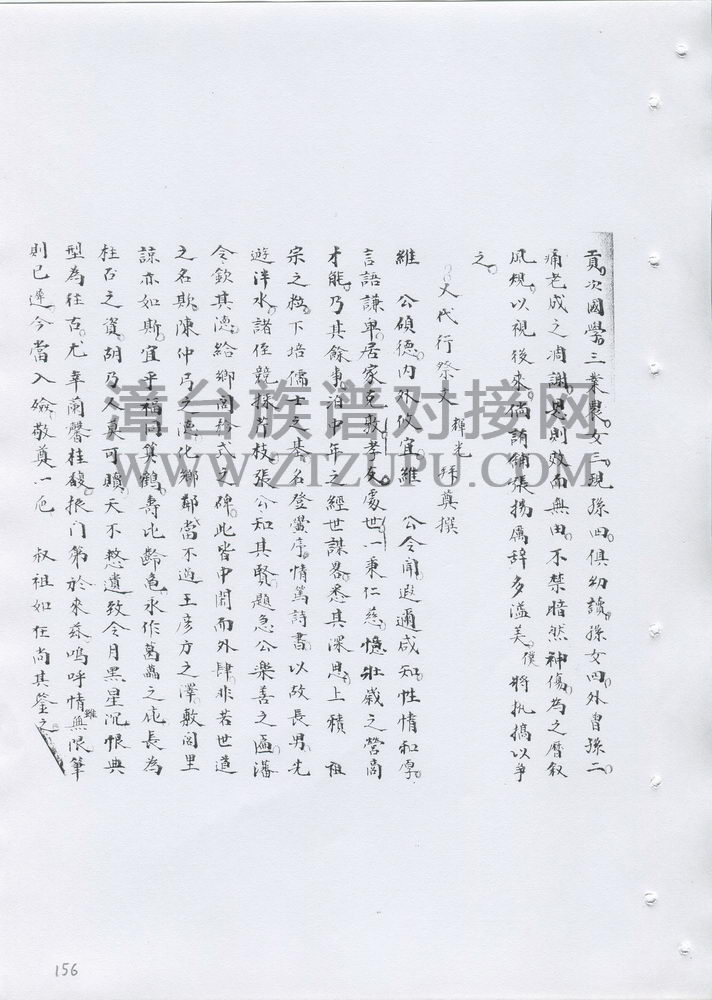 貢次國學三業農女三現孫四俱幼讀孫女四外曾孫二
痛老成之凋謝思則效而無由不禁暗然神傷為之曆叙
風規以視後來倘誚鋪張揚厲辭多溢美僕將執摛以爭
之
又代行祭文 輝光拜奠撰
維 公碩德內外攸宜維 公令聞遐邇咸知性情和厚
言語謙卑居家克敦孝友處世一秉仁慈憶壯歲之營商
才能乃其餘事洎中年之經世謀畧悉其深思上積 祖
宗之 下培儒士之基名登黌序情篤詩書以故長男先
遊泮水諸侄競採芹枝張公知其賢題急公樂善之匾藩
令欽其德給鄉閭矜式之碑此皆中閎而外肆非若世道
之名欺陳仲弓之德化鄉鄰當不過王彦方之澤敷閭里
諒亦如斯宜乎福同算鶴壽比齡龜永作萬 之庇長為
柱石之資胡乃人莫可贖天不憗遺致令月黑星沉恨典
型為往古尤幸蘭馨桂馥振门第於來茲嗚呼情雖無限筆
則已遲今當入殮敬奠一卮 叔祖如在尚其鉴之
漳台族谱对接网
WWW.ZTZUPU.COM
156